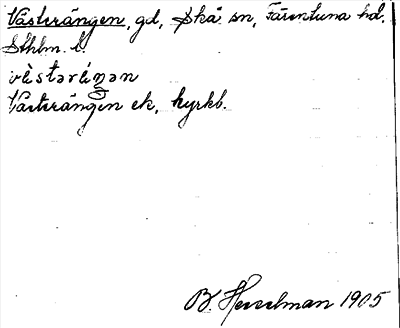 Västerängen, gd, Skå sn, Färentuna hd,
Sthlm. l.
vèstəréŋən
Västerängen ek, kyrkb.
B Hesselman 1905